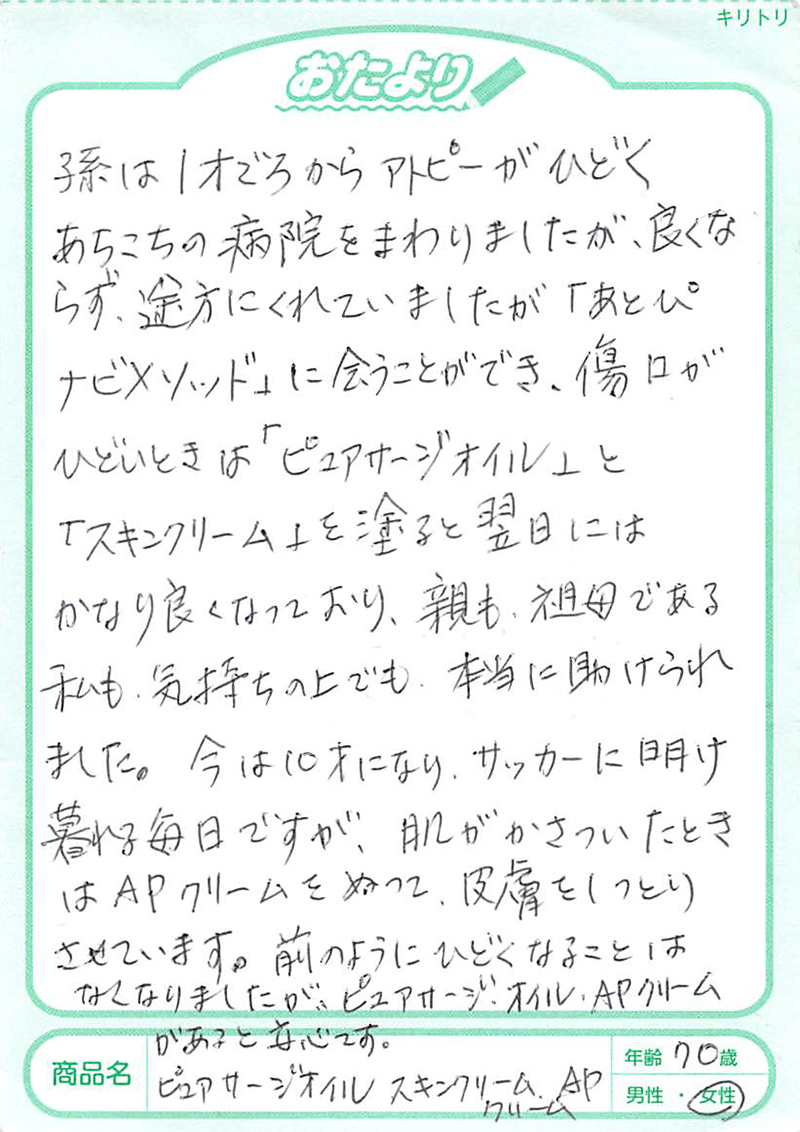 キリトリ
おたより
孫は1才ごろからアトピーがひどく
あちこちの病院をまわりましたが、良くな
らず、途方にくれていましたが「あとぴ
ナビメソッド」に会うことができ、傷口が
ひどいときは「ピュアサージオイル」と
「スキンクリーム」を塗ると翌日には
かなり良くなっており、親も、祖母である
私も、気持ちの上でも、本当に助けられ
ました。今は10才になり、サッカーに明け
暮れる毎日ですが、肌がかさついたとき
はAPクリームをぬって、皮膚をしっとり
させています。前のようにひどくなることは
なくなりましたが、ピュアサージ・オイル・APクリーム
があると安心です。
商品名
ピュアサージオイル スキンクリーム、AP
クリーム
年齢 70歳
男性・女性